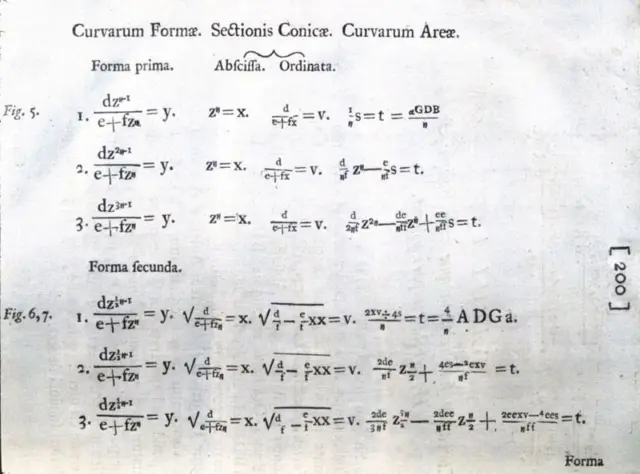 Curvarum Formæ. Sectionis Conicæ. Curvarum Areæ.
Forma prima. Abſciſſa. Ordinata.
Fig. 5. 1. dz^(η-1)/(e+fz^η) = y. z^η = x. d/(e+fx) = v. (1/η)s = t = αGDB/η
2. dz^(2η-1)/(e+fz^η) = y. z^η = x. d/(e+fx) = v. (d/ηf)z^η − (e/f)s = t.
3. dz^(3η-1)/(e+fz^η) = y. z^η = x. d/(e+fx) = v. (d/2ηf)z^(2η) − (de/ηff)z^η + (ee/ηff)s = t.
Forma ſecunda.
Fig. 6, 7. 1. dz^(½η-1)/(e+fz^η) = y. √(d/(e+fz^η)) = x. √(d/f − (e/f)xx) = v. (2xv÷4s)/η = t = (4/η) ADGa.
2. dz^(½η-1)/(e+fz^η) = y. √(d/(e+fz^η)) = x. √(d/f − (e/f)xx) = v. (2de/ηf)z^(η/2) + (4es−2exv)/ηf = t.
3. dz^(½η-1)/(e+fz^η) = y. √(d/(e+fz^η)) = x. √(d/f − (e/f)xx) = v. (2de/3ηf)z^(3η/2) − (2dee/ηff)z^(η/2) + (2eexv−4ees)/ηff = t.
Forma
[ 200 ]